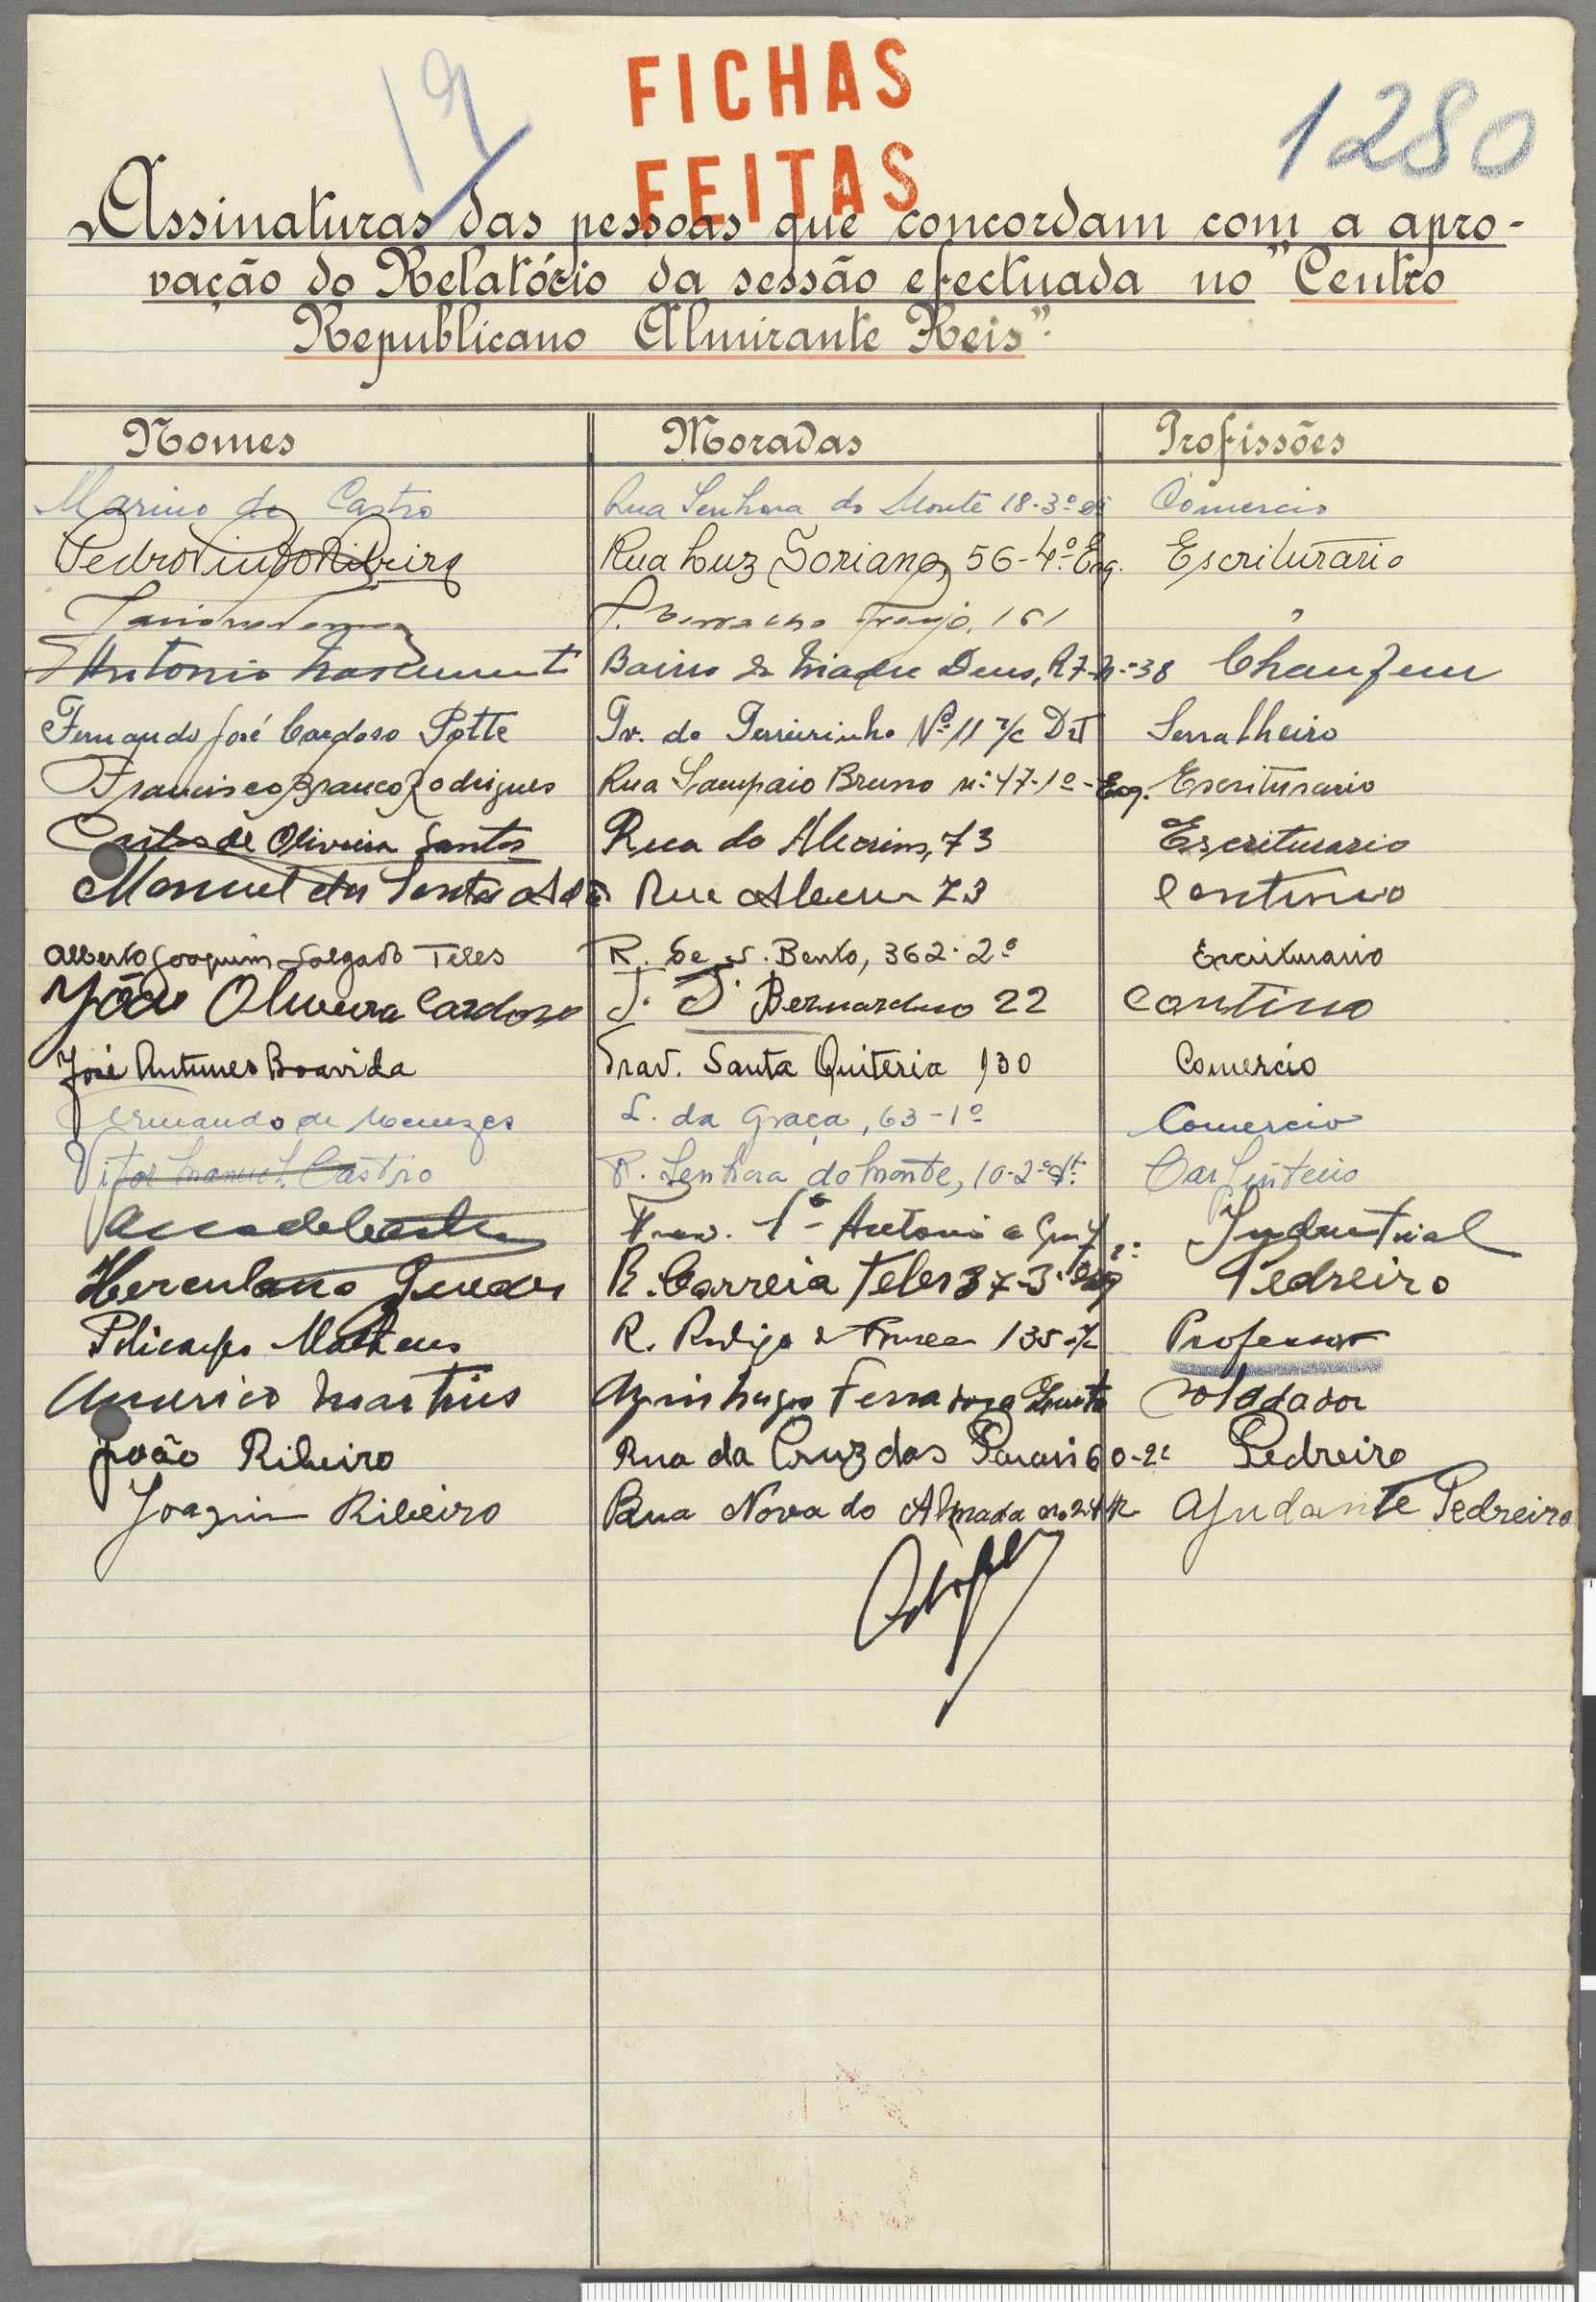 19
FICHAS
FEITAS
1280
Assinaturas das pessoas que concordam com a apro-
vação do Relatório da sessão efectuada no "Centro
Republicano Almirante Reis".
Nomes Moradas Profissões
Marino de Castro Rua Senhora do Monte 18-3º Comercio
Pedro Pinto Ribeiro Rua Luz Soriano, 56-4º Esq. Escriturário
161 "
Antonio Nascimento Bairro da Madre Deus, R7-N.º38 Chaufeur
Fernando José Cardoso Potte Tv. do Terreirinho Nº 11 r/c Dt Serralheiro
Francisco Branco Rodrigues Rua Sampaio Bruno nº 47-1º-Esq. Escriturario
Carlos de Oliveira Santos Rua do Alecrim, 73 Escriturario
Manuel dos Santos Rua Alecrim 73 Contínuo
Alberto Joaquim Salgado Teles R. de S. Bento, 362-2º Escriturario
João Oliveira Cardoso T. S. Bernardino 22 Contino
José Antunes Boavida Trav. Santa Quiteria 130 Comercio
Armando de Menezes L. da Graça, 63-1º Comercio
Vitor Manuel Castro R. Senhora do Monte, 10-2º dt. Carpinteiro
Trav. Sto Antonio a Industrial
Herculano Guedes R. Correia Teles 37-3º Esq Pedreiro
Policarpo Matheus R. Rodrigo da Fonseca 135 Professor
Americo Martins Azinhaga Soldador
João Ribeiro Rua da Cruz dos Poiais 60-2º Pedreiro
Joaquim Ribeiro Rua Nova do Almada nº 24 Ajudante Pedreiro